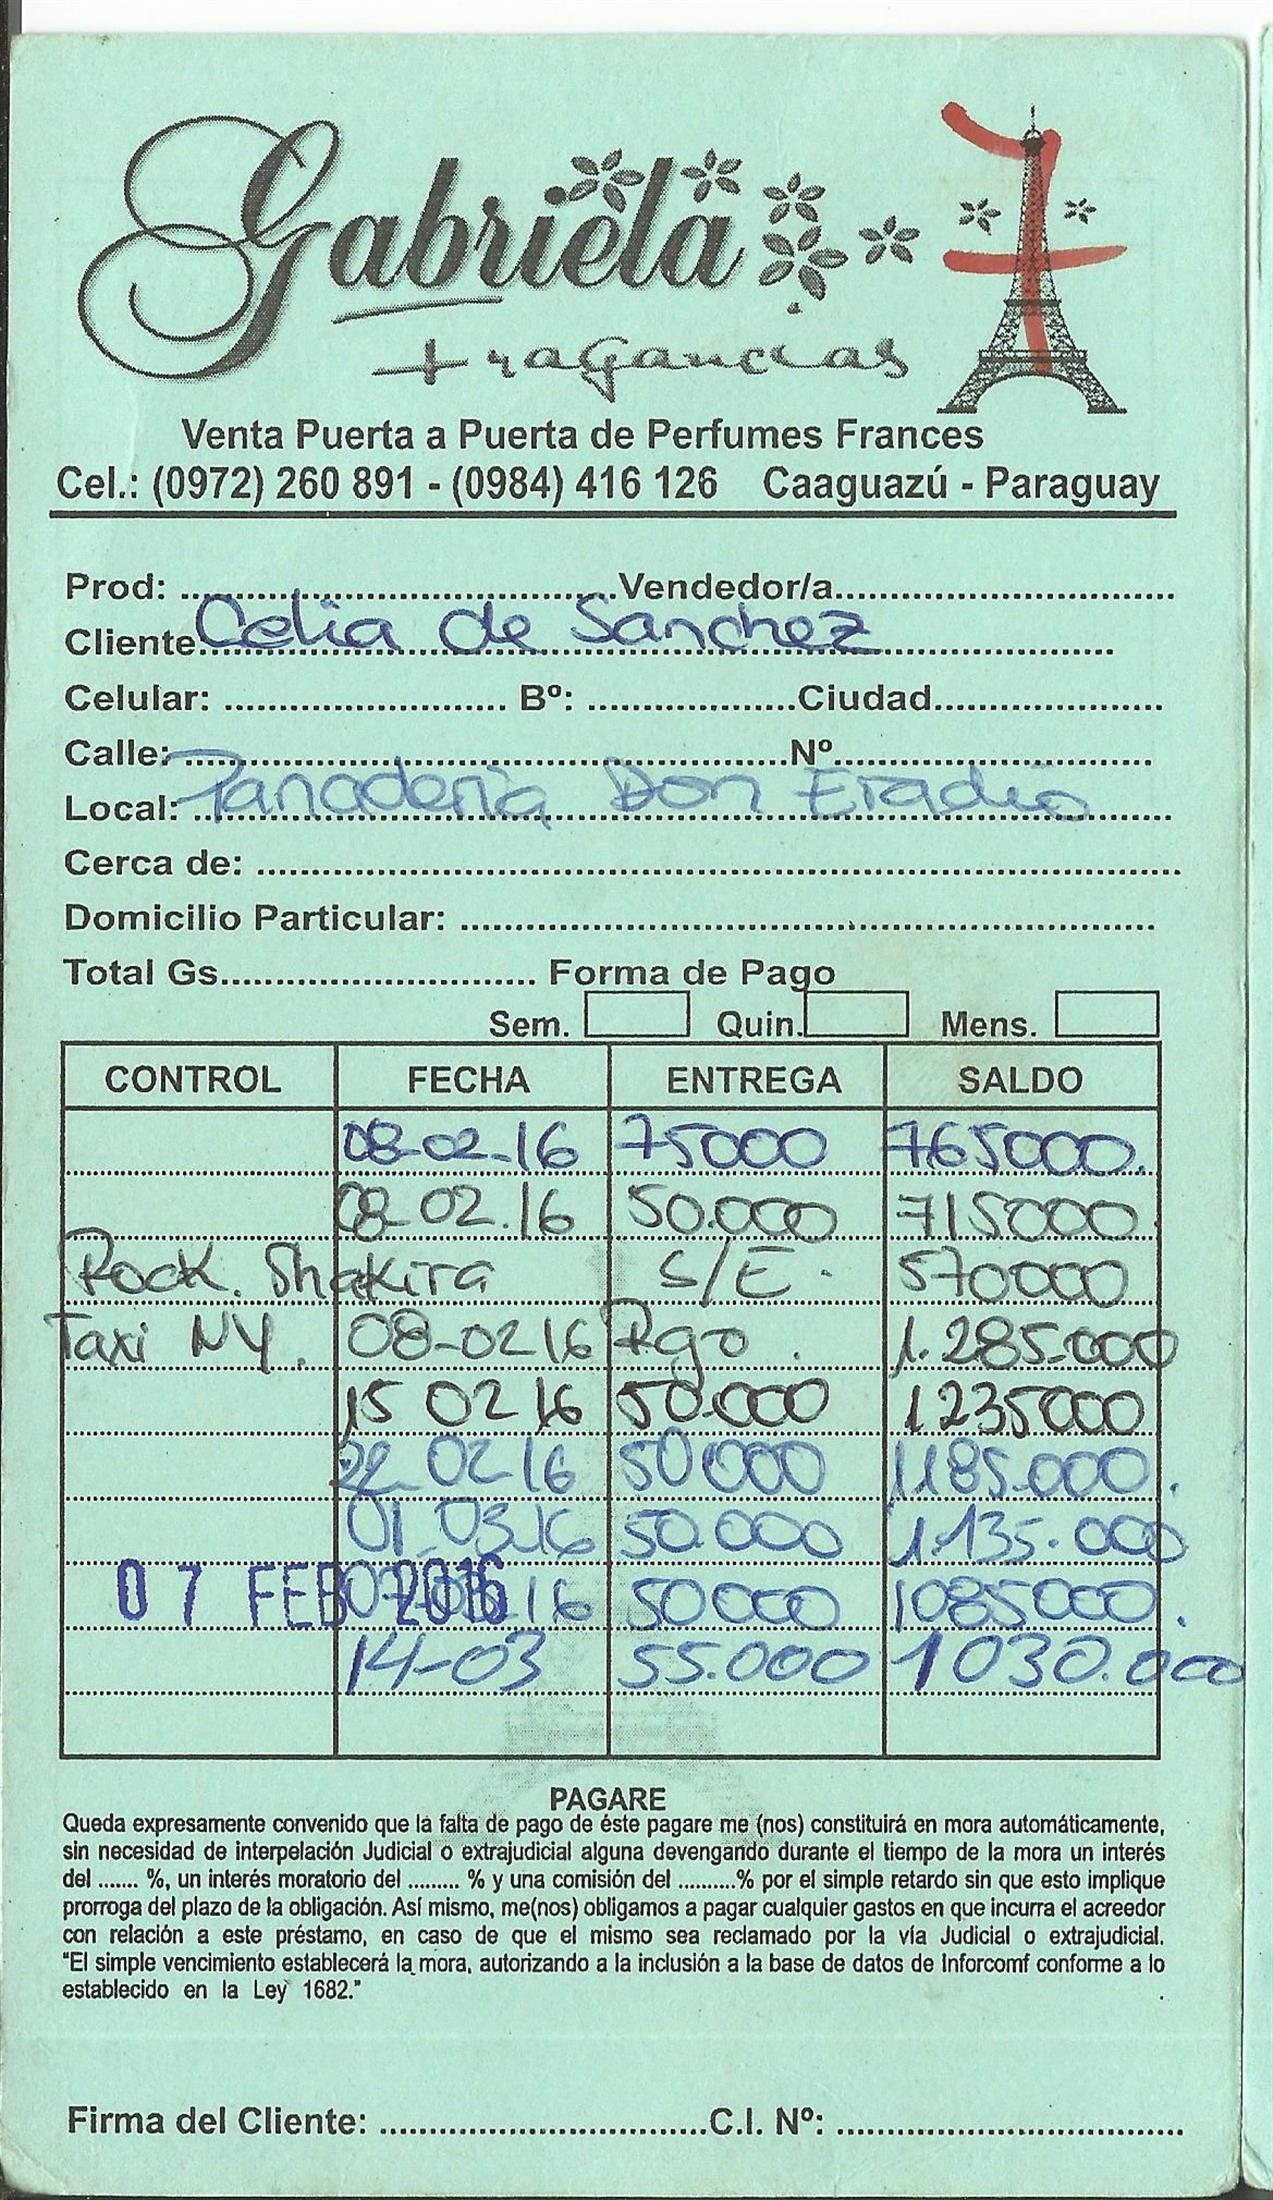 Gabriela
Fragancias
7
Venta Puerta a Puerta de Perfumes Frances
Cel.: (0972) 260 891 - (0984) 416 126 Caaguazú - Paraguay
Prod: ........ Vendedor/a........
Cliente: Celia de Sanchez
Celular: ........ Bº: ........ Ciudad........
Calle: ........ Nº........
Local: Panaderia Don Eradio
Cerca de: ........
Domicilio Particular: ........
Total Gs........ Forma de Pago
Sem. Quin. Mens.
CONTROL FECHA ENTREGA SALDO
08-02-16 75000 765000.
08-02.16 50.000 715000.
Rock. Shakira S/E. 570000
Taxi NY. 08-02 16 Rgo. 1.285.000
15 02 16 50.000 1235000
22-02 16 50000 1185.000.
01-03.16 50.000 1.135.000
07 FEB 2016 16 50000 1085000.
14-03 55.000 1030.000
PAGARE
Queda expresamente convenido que la falta de pago de éste pagare me (nos) constituirá en mora automáticamente,
sin necesidad de interpelación Judicial o extrajudicial alguna devengando durante el tiempo de la mora un interés
del ....... %, un interés moratorio del ......... % y una comisión del ..........% por el simple retardo sin que esto implique
prorroga del plazo de la obligación. Así mismo, me(nos) obligamos a pagar cualquier gastos en que incurra el acreedor
con relación a este préstamo, en caso de que el mismo sea reclamado por la vía Judicial o extrajudicial.
"El simple vencimiento establecerá la mora, autorizando a la inclusión a la base de datos de Inforcomf conforme a lo
establecido en la Ley 1682."
Firma del Cliente: ........ C.I. Nº: ........